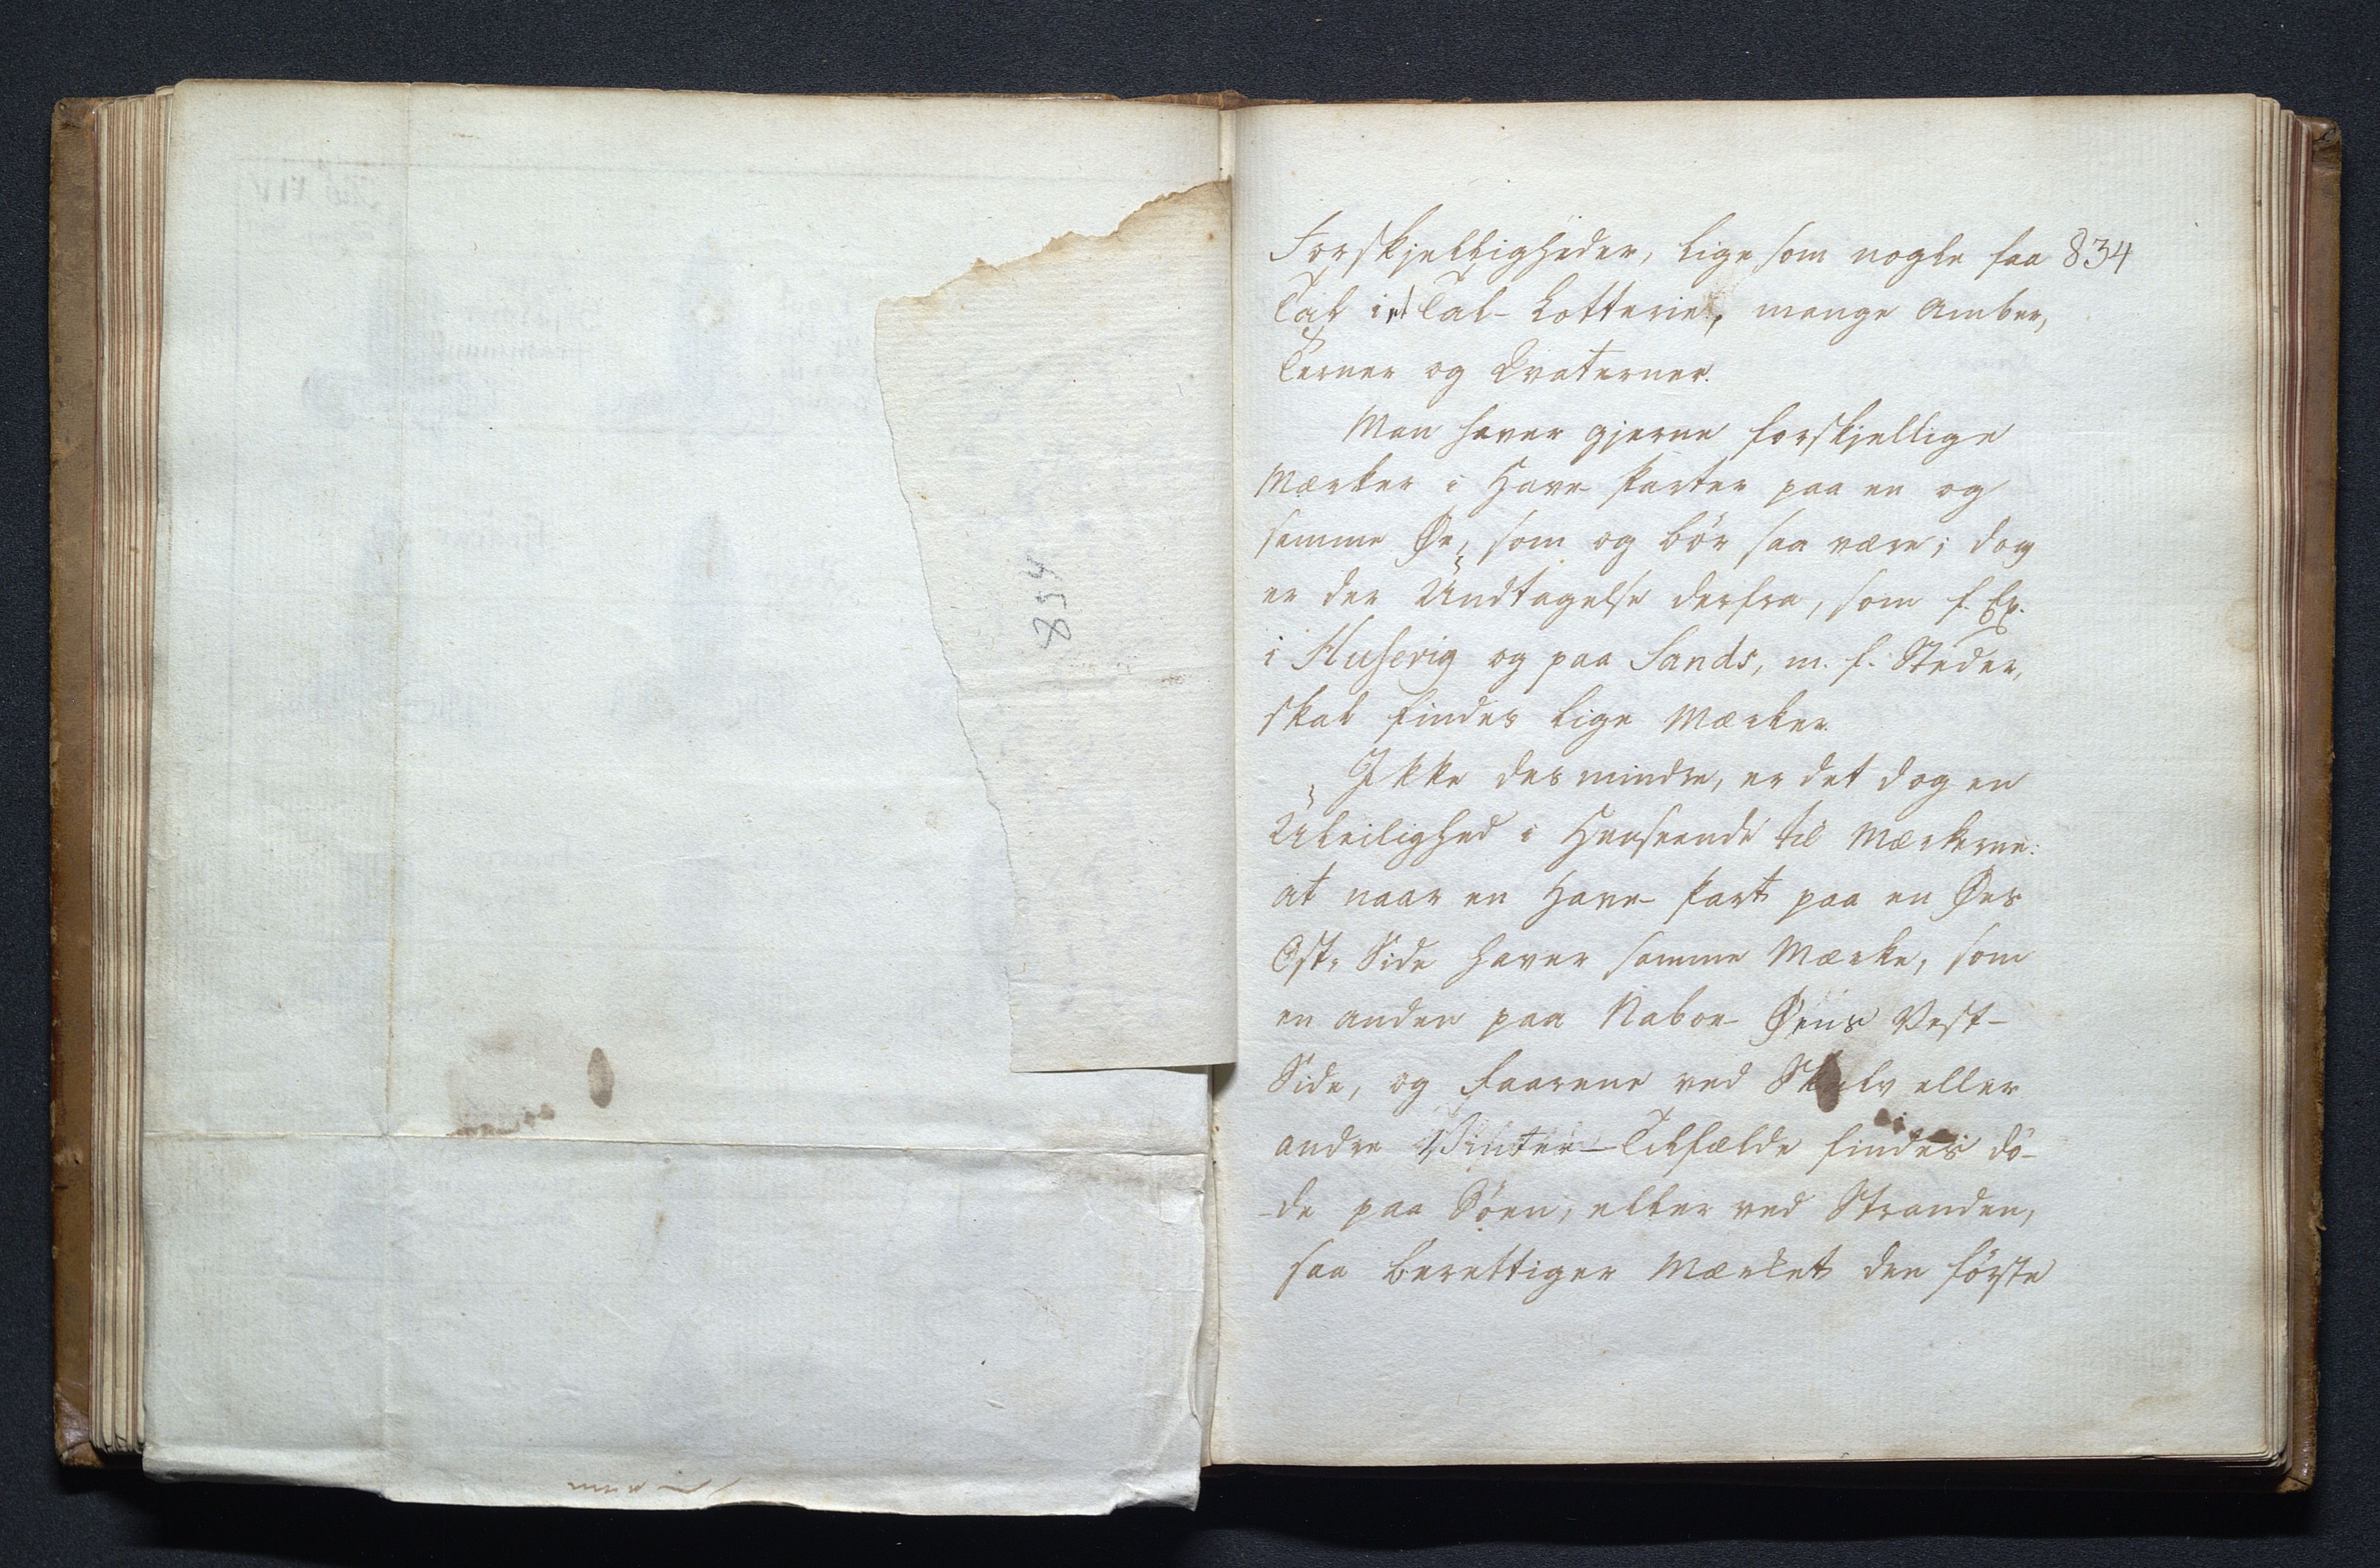 834
Forskjelligheder, lige som nogle faa 834
Tal i et Tal-Lotterie, mange Amber,
Terner og Qvaterner.
Man haver gjerne forskjellige
Mærker i Have-Parter paa en og
samme Øe, som og bör saa være; dog
er der Undtagelse derfra, som f. Ex.
i Huserig og paa Sands, m. f. Steder,
skal findes lige Mærker.
Ikke des mindre, er det dog en
Uleilighed i Henseende til Mærkerne:
at naar en Have-Part paa en Øes
Ost-Side haver samme Mærke, som
en anden paa Naboe-Øens Vest-
Side, og Faarene ved Skalv eller
andre Vinter-Tilfælde findes dö-
-de paa Söen, eller ved Stranden,
saa berettiger Mærket den förste